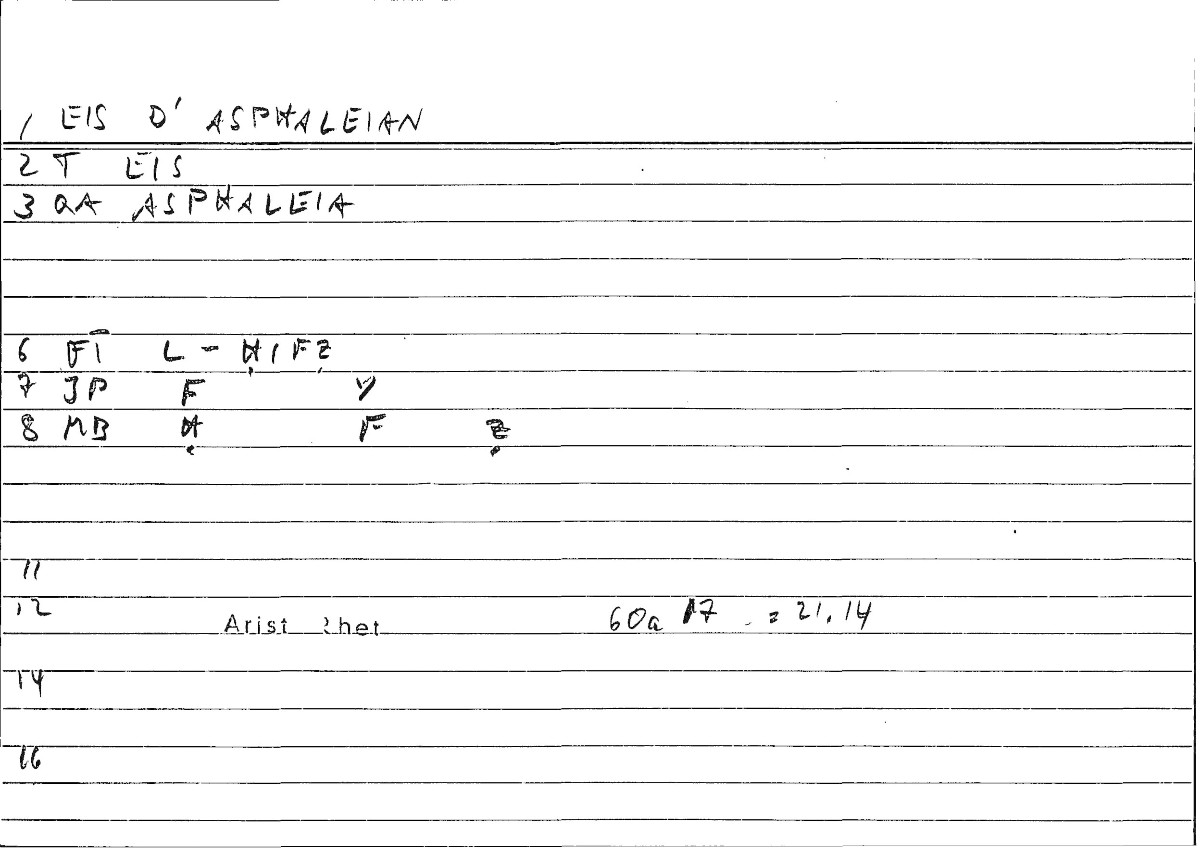 1 EIS D' ASPHALEIAN
2 T EIS
3 QA ASPHALEIA
6 FĪ L-ḤIFẒ
7 JP F Y
8 MB Ḥ F Ẓ
11
12 Arist Rhet 60a 17 = 21.14
14
16